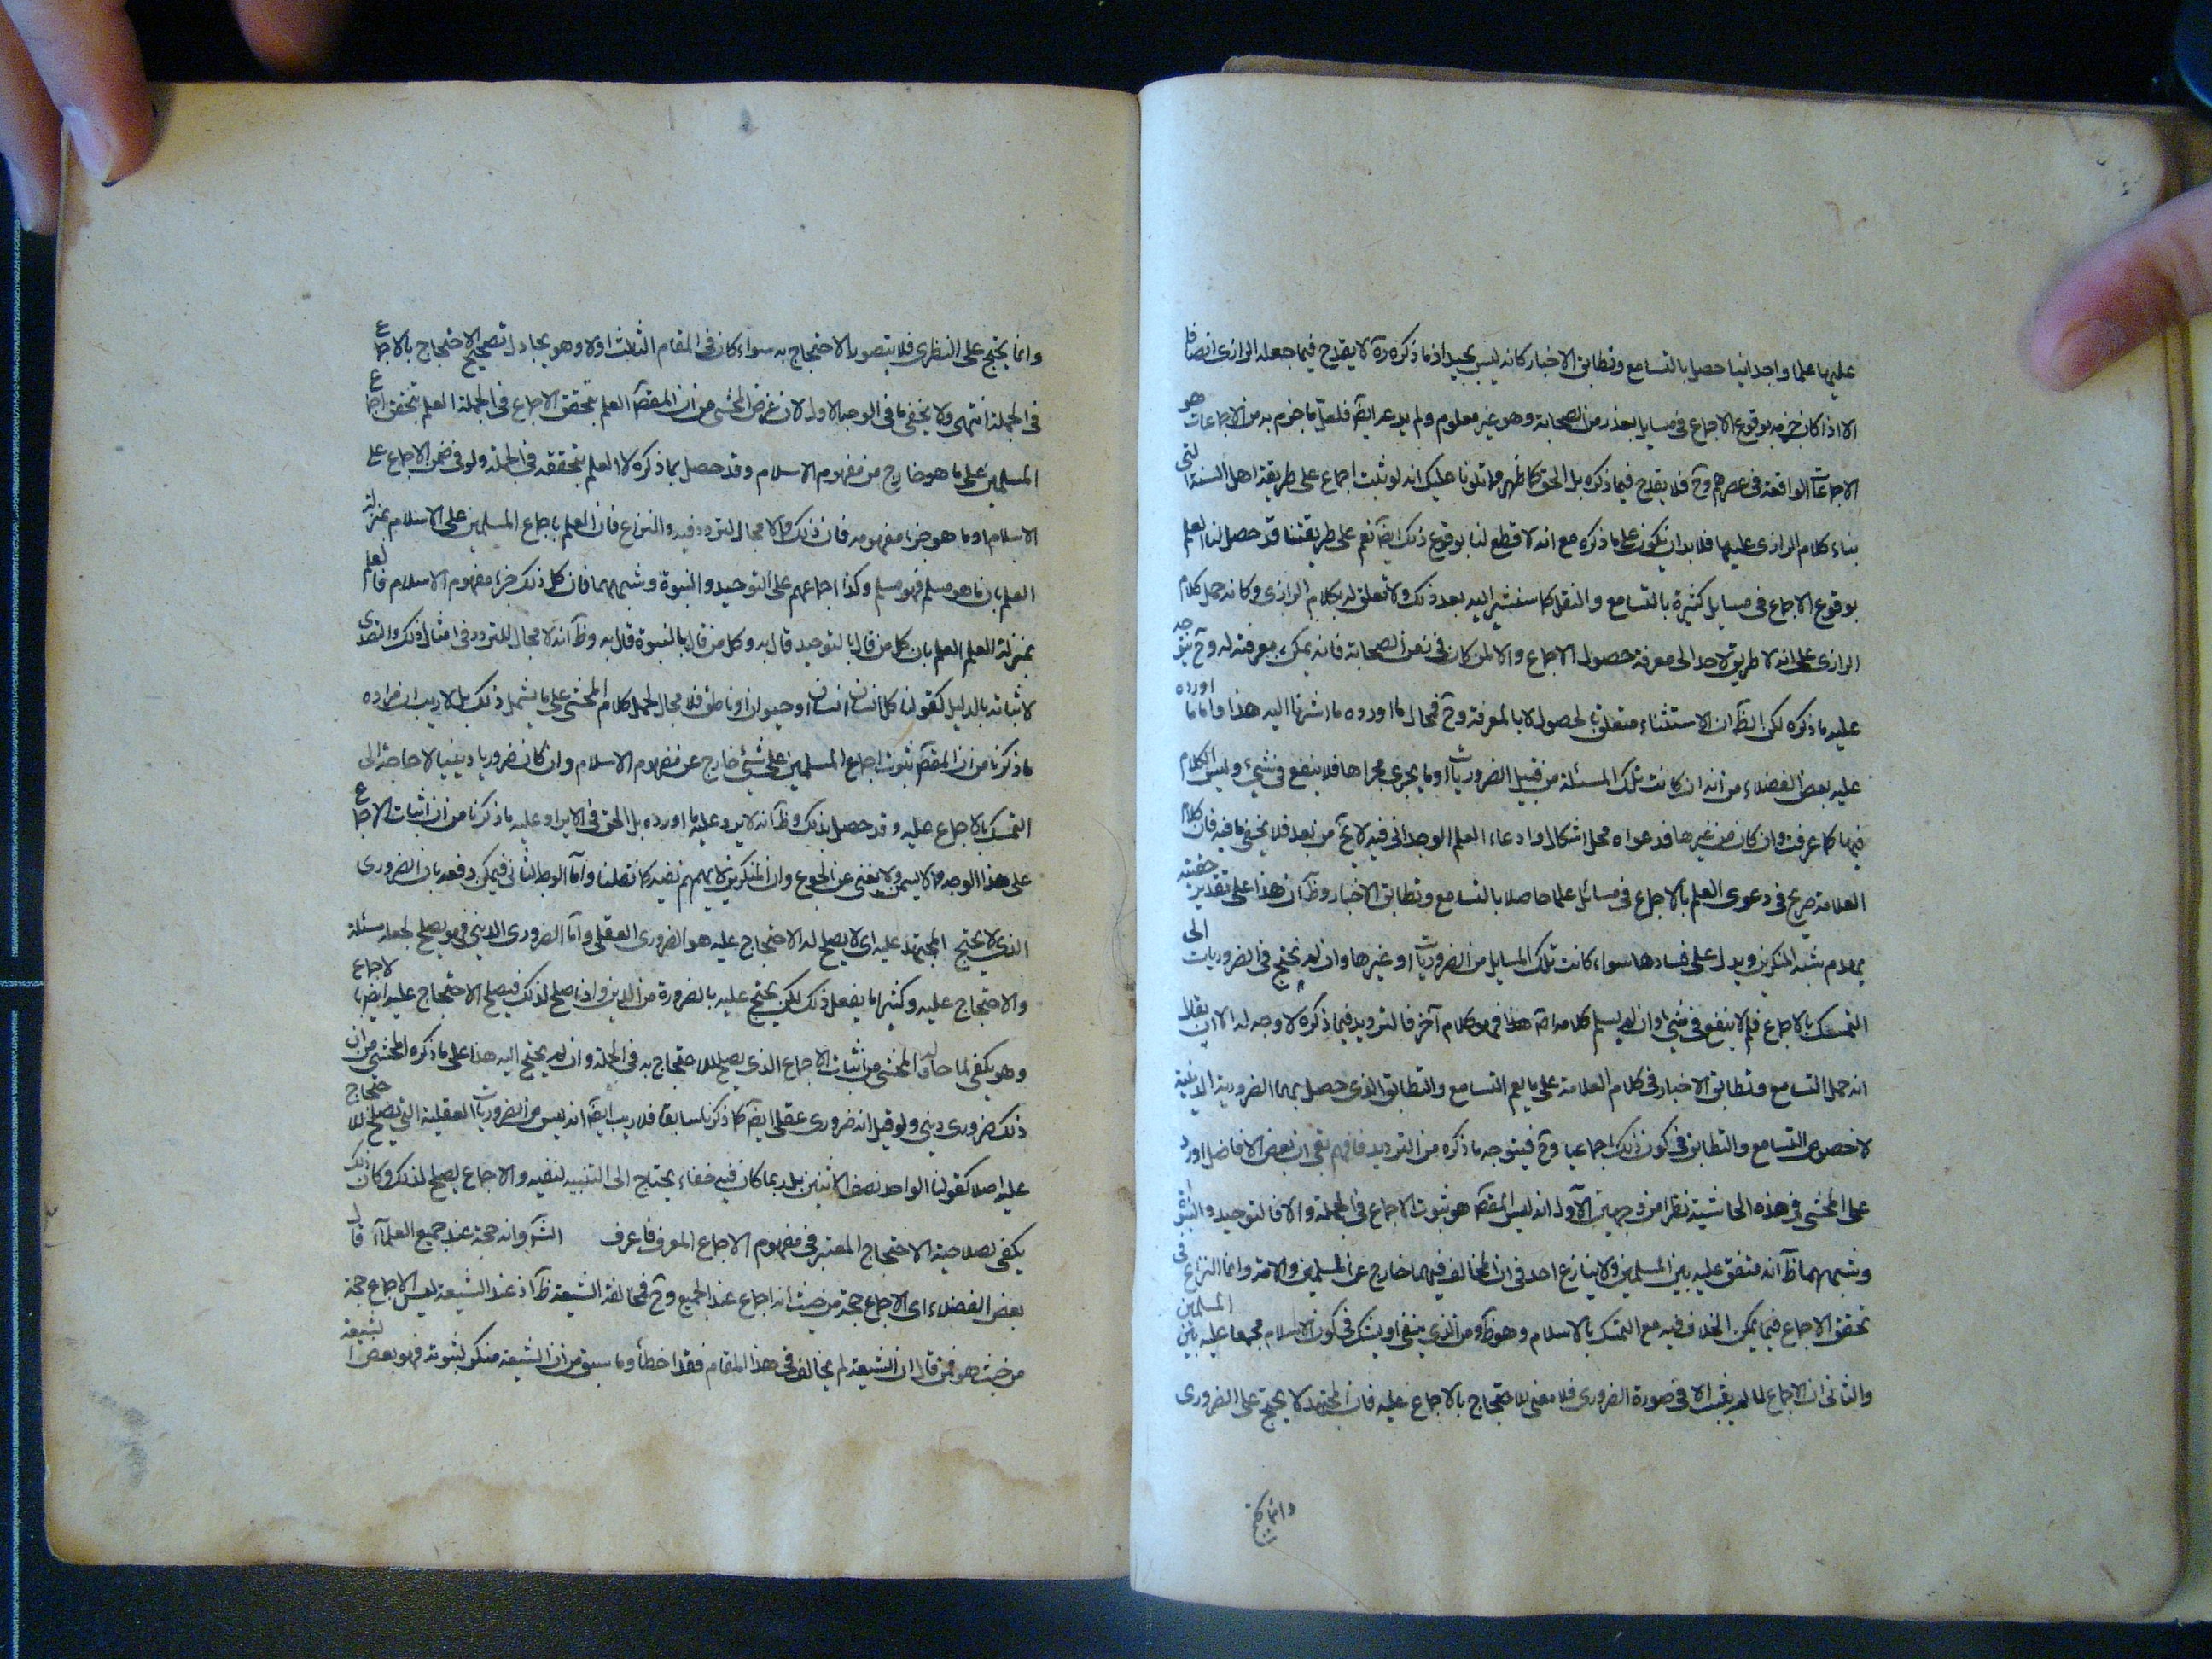 عليها علما وجدانيا حصل بالتسامع وتطابق الاخبار كانه ليس بجيد اذ ما ذكره ره لا يقدح فيما جعله الرازى انصافا
الا اذا كان جزمه بوقوع الاجماع فى مسايل بعد زمن الصحابة وهو غير معلوم ولم يدعه ايضا فلعل ما جزم به من الاجماعات هو
الاجماعات الواقعة فى عصرهم وح فلا يقدح فيما ذكره بل الحق كما ظهر مما تلونا عليك انه لو ثبت اجماع على طريقة اهل السنة التى
بناء كلام الرازى عليها فلا بد ان يكون على ما ذكره مع انه لا قطع لنا بوقوع ذلك ايضا نعم على طريقتنا قد حصل لنا العلم
بوقوع الاجماع فى مسايل كثيرة بالتسامع والنقل كما سنشير اليه بعد ذلك ولا تعلق له بكلام الرازى وكانه حمل كلام
الرازى على انه لا طريق لاحد الى معرفة حصول الاجماع والا لمن كان فى زمن الصحابة فانه يمكن معرفته له وح يتوجه
عليه ما ذكره لكن الظ ان الاستثناء متعلق بالحصول لا بالمعرفة وح فحال ما اورده ما اشرنا اليه هذا واما ما اورده
عليه بعض الفضلاء من انه ان كانت تلك المسئلة من قبيل الضروريات او ما يجرى مجراها فلا ينفع فى شىء وليس الكلام
فيها كما عرفت وان كان من غيرها فدعواه محل اشكال وادعاء العلم الوجدانى فيه لا يخ من بعد فلا يخفى ما فيه فان كلام
العلامة صريح فى دعوى العلم بالاجماع فى مسائل علما حاصلا بالتسامع وتطابق الاخبار وظ ان هذا على تقدير حقيته
يهدم شبه المنكرين ويدل على فسادها سواء كانت تلك المسايل من الضروريات او غيرها وان لم نحتج فى الضروريات الى
التمسك بالاجماع فلم لا ينفع فى شىء وان لم يسلم كلامه ره هذا فهو كلام آخر فالترديد فيما ذكره لا وجه له الا ان يقال
انه حمل التسامع وتطابق الاخبار فى كلام العلامة على ما يعم التسامع والتطابق الذى حصل بهما الضرورية الدينية
لا خصوص التسامع والتطابق فى كون ذلك اجماعيا وح فيتوجه ما ذكره من الترديد فافهم بقى ان بعض الافاضل اورد
على المحشى فى هذه الحاشية نظرا من وجهين الاول انه ليس المقص هو ثبوت الاجماع فى الجملة والا فالتوحيد والنبوة
وشبههما ظ انه متفق عليه بين المسلمين ولا ينازع احد فى ان المخالف فيهما خارج عن المسلمين والامة وانما النزاع فى
تحقق الاجماع فيما يمكن الخلاف فيه مع التمسك بالاسلام وهو ظ ومن الذى ينفى او يشك فى كون الاسلام مجمعا عليه بين المسلمين
والثانى ان الاجماع لما لم يثبت الا فى صورة الضرورى فلا معنى للاحتجاج بالاجماع عليه فان المجتهد لا يحتج على الضرورى
وانما يحتج
وانما يحتج على النظرى فلا يتصور الاحتجاج به سواء كان فى المقام الثالث اولا وهو يجادل تصحيح الاحتجاج بالاجماع
فى الجملة انتهى ولا يخفى ما فى الوجه الاول لان غرض المحشى من ان المقص العلم بتحقق الاجماع فى الجملة العلم بتحقق اجماع
المسلمين على ما هو خارج من مفهوم الاسلام وقد حصل بما ذكره لا العلم بتحققه فى الجملة ولو فى ضمن الاجماع على
الاسلام او ما هو جزء مفهومه فان ذلك مما لا مجال للتردد فيه والنزاع فان العلم باجماع المسلمين على الاسلام بمنزلة
العلم بان ما هو مسلم فهو مسلم وكذا اجماعهم على التوحيد والنبوة وشبههما فان كل ذلك جزء مفهوم الاسلام فالعلم
بمنزلة العلم العلم بان كل من قال بالتوحيد قال به وكل من قال بالنبوة قال به وظ انه لا مجال للتردد فى امثال ذلك والتصدى
لاثباته بالدليل كقولنا كل انسان انسان او حيوان او ناطق فلا مجال لحمل كلام المحشى على ما يشمل ذلك بل لا ريب ان مراده
ما ذكرنا من ان المقص ثبوت اجماع المسلمين على شىء خارج عن مفهوم الاسلام وان كان ضروريا دينيا لا حاجة الى
التمسك بالاجماع عليه وقد حصل بذلك وظ انه لا يرد عليه ما اورده بل الحق فى الايراد عليه ما ذكرنا من ان اثبات الاجماع
على هذا الوجه مما لا يسمن ولا يغنى عن الجوع وان المنكرين لا يهمهم نفيه كما نقلنا واما الوجه الثانى فيمكن دفعه بان الضرورى
الذى لا يحتج المجتهد عليه اى لا يصلح له الاحتجاج عليه هو الضرورى العقلى واما الضرورى الدينى فهو يصلح لجعله مسئلة
والاحتجاج عليه وكثيرا ما يفعل ذلك لكن يحتج عليه بالضرورة من الدين واذا صلح لذلك فيصلح الاحتجاج عليه ايضا بالاجماع
وهو يكفى لما حاوله المحشى من اثبات الاجماع الذى يصلح للاحتجاج به فى الجملة وان لم يحتج اليه هذا على ما ذكره المحشى من ان
ذلك ضرورى دينى ولو قيل انه ضرورى عقلى ايضا كما ذكرنا سابقا فلا ريب ايضا انه ليس من الضروريات العقلية التى لا يصلح للاحتجاج
عليه اصلا كقولنا الواحد نصف الاثنين بل ربما كان فيه خفاء يحتاج الى التنبيه لنفيه والاجماع يصلح لذلك وكان ذلك
يكفى لصلاحية الاحتجاج المعتبر فى مفهوم الاجماع المعرف فاعرف وانه حجة عند جميع العلماء قال
بعض الفضلاء اى الاجماع حجة من حيث انه اجماع عند الجميع وح فمخالفة الشيعة ظ اذ عند الشيعة ليس الاجماع حجة
من حيث هو فمن قال ان الشيعة لم يخالف فى هذا المقام فقد اخطأ وما سبق من ان الشيعة منكر لثبوته فهو بعض الشيعة